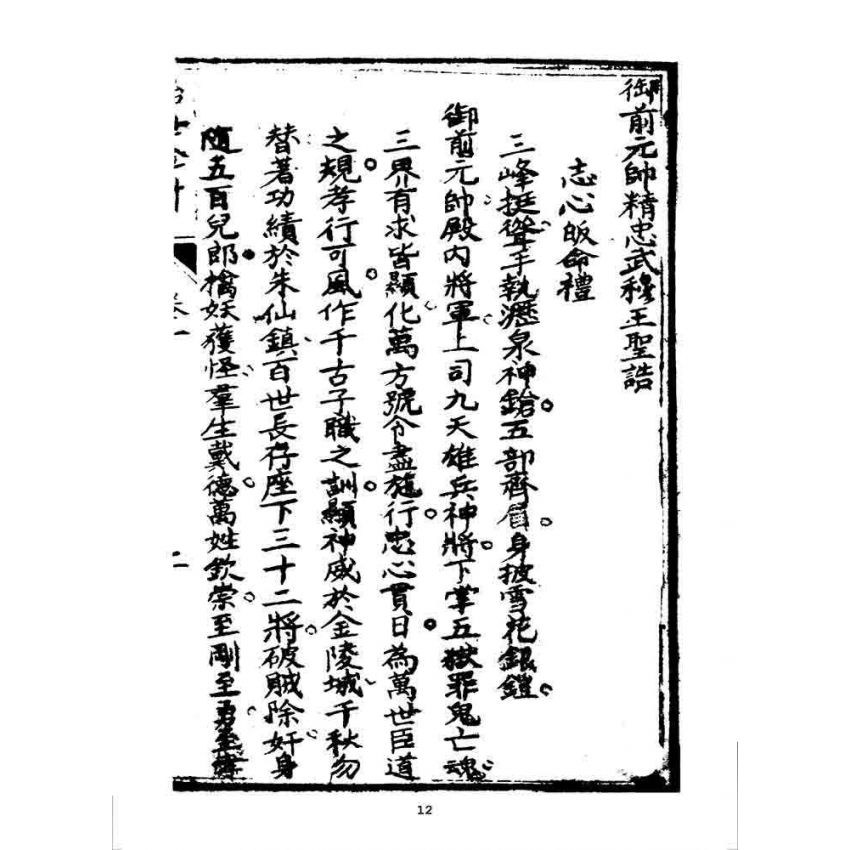 御前元帥精忠武穆王聖誥
志心皈命禮
三峰挺聳手執瀝泉神鎗五部齊眉身披雪花銀鎧
御前元帥殿內將軍上司九天雄兵神將下掌五獄罪鬼亡魂
三界有求皆顯化萬方號令盡施行忠心貫日為萬世臣道
之規孝行可風作千古子職之訓顯神威於金陵城千秋勿
替著功績於朱仙鎮百世長存座下三十二將破賊除奸身
隨五百兒郎擒妖獲怪羣生戴德萬姓欽崇至剛至勇至
卷一
12